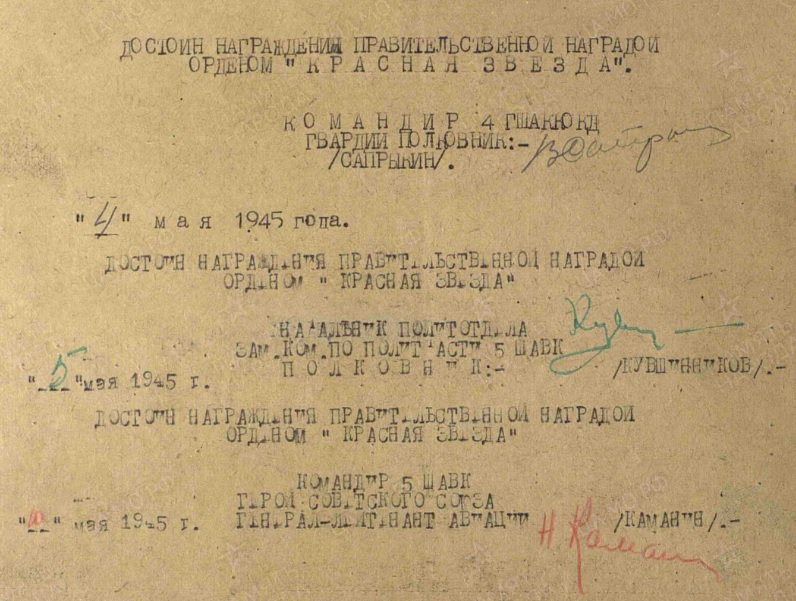 ДОСТОИН НАГРАЖДЕНИЯ ПРАВИТЕЛЬСТВЕННОЙ НАГРАДОЙ
ОРДЕНОМ " К Р А С Н А Я З В Е З Д А".
К О М А Н Д И Р 4 ГШАКЮКД
ГВАРДИИ ПОЛКОВНИК:-
/САПРЫКИН/.
"4" м а я 1945 года.
ДОСТОИН НАГРАЖДЕНИЯ ПРАВИТЕЛЬСТВЕННОЙ НАГРАДОЙ
ОРДЕНОМ " КРАСНАЯ ЗВЕЗДА"
НАЧАЛЬНИК ПОЛИТОТДЕЛА
ЗАМ.КОМ.ПО ПОЛИТЧАСТИ 5 ШАВК
"5" мая 1945 г. П О Л К О В Н И К:- /КУВШИННИКОВ/.-
ДОСТОИН НАГРАЖДЕНИЯ ПРАВИТЕЛЬСТВЕННОЙ НАГРАДОЙ
ОРДЕНОМ " КРАСНАЯ ЗВЕЗДА"
КОМАНДИР 5 ШАВК
ГЕРОЙ СОВЕТСКОГО СОЮЗА
" " мая 1945 г. ГЕНЕРАЛ-ЛЕЙТЕНАНТ АВИАЦИИ Н Каманин /КАМАНИН/.-